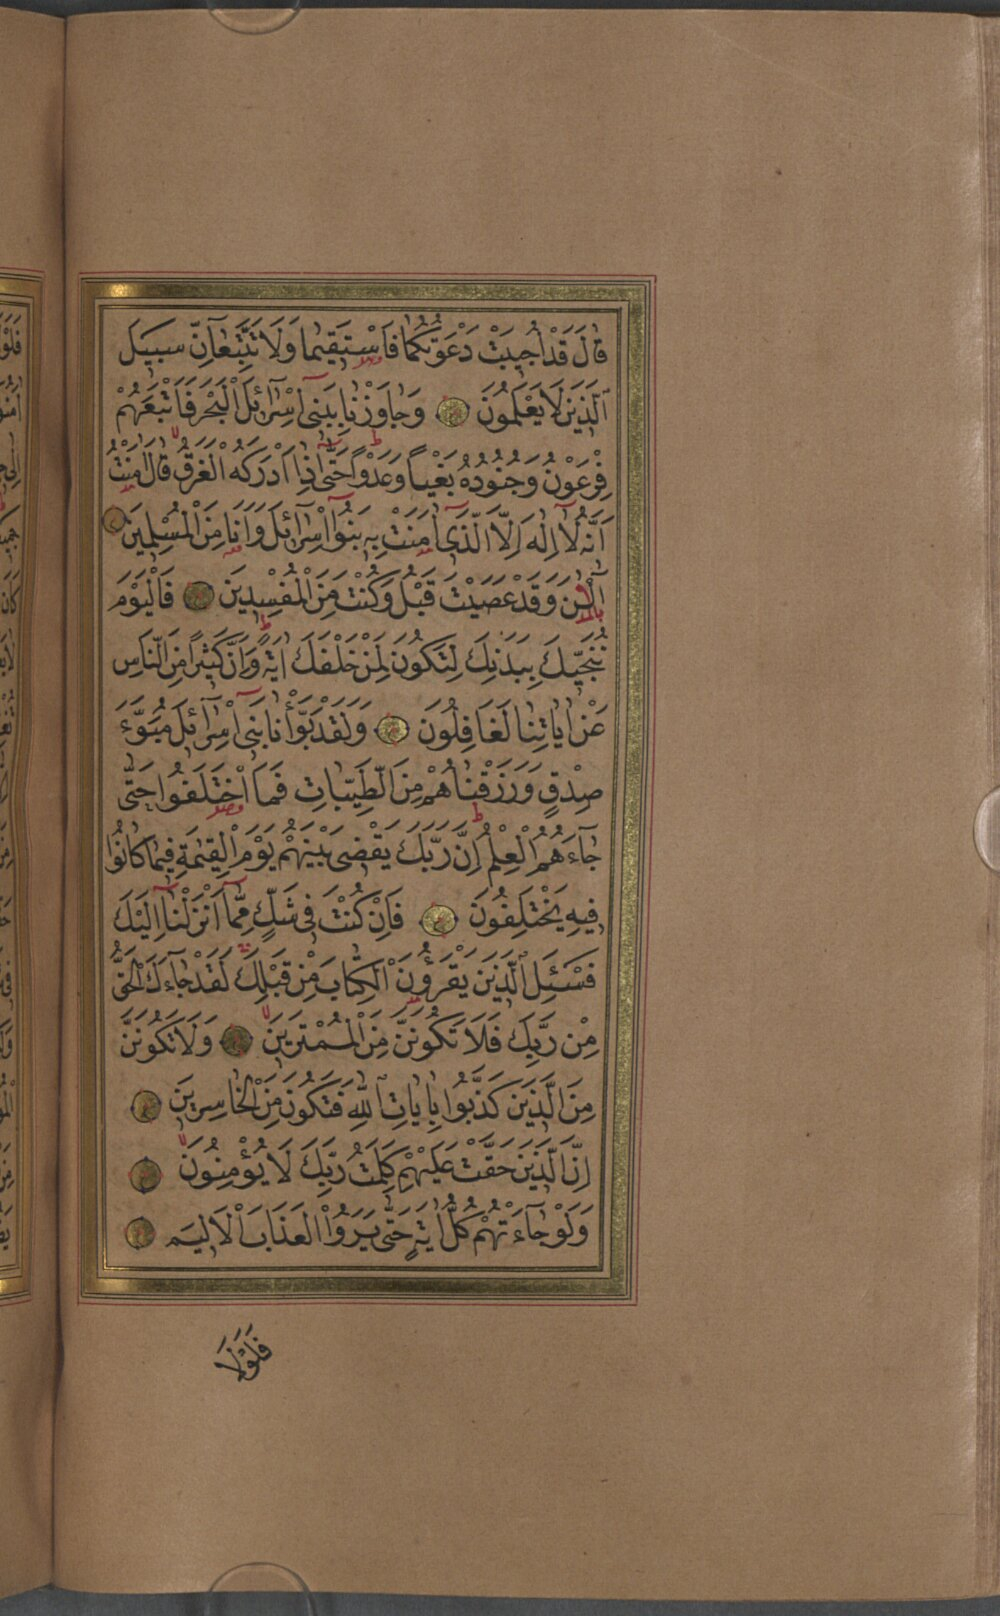 قَالَ قَدْ اُجِيبَتْ دَعْوَتُكُمَا فَاسْتَقِيمَا وَلَا تَتَّبِعَآنِّ سَبِيلَ
الَّذِينَ لَا يَعْلَمُونَ وَجَاوَزْنَا بِبَنِىٓ اِسْرَآئِلَ الْبَحْرَ فَاَتْبَعَهُمْ
فِرْعَوْنُ وَجُنُودُهُ بَغْياً وَعَدْوًا حَتّٰٓى اِذَا اَدْرَكَهُ الْغَرَقُ قَالَ اٰمَنْتُ
اَنَّهُ لَآ اِلٰهَ اِلَّا الَّذٓى اٰمَنَتْ بِهِ بَنُوٓا اِسْرَآئِلَ وَاَنَا مِنَ الْمُسْلِمِينَ
آٰلْـٰٔنَ وَقَدْ عَصَيْتَ قَبْلُ وَكُنْتَ مِنَ الْمُفْسِدِينَ فَالْيَوْمَ
نُنَجِّيكَ بِبَدَنِكَ لِتَكُونَ لِمَنْ خَلْفَكَ اٰيَةً وَاِنَّ كَثِيرًا مِنَ النَّاسِ
عَنْ اٰيَاتِنَا لَغَافِلُونَ وَلَقَدْ بَوَّأْنَا بَنِىٓ اِسْرَآئِلَ مُبَوَّءَ
صِدْقٍ وَرَزَقْنَاهُمْ مِنَ الطَّيِّبَاتِ فَمَا اخْتَلَفُوا حَتّٰى
جَآءَهُمُ الْعِلْمُ اِنَّ رَبَّكَ يَقْضِى بَيْنَهُمْ يَوْمَ الْقِيٰمَةِ فِيمَا كَانُوا
فِيهِ يَخْتَلِفُونَ فَاِنْ كُنْتَ فِى شَكٍّ مِمَّٓا اَنْزَلْنَآ اِلَيْكَ
فَسْـَٔلِ الَّذِينَ يَقْرَؤُنَ الْكِتَابَ مِنْ قَبْلِكَ لَقَدْ جَآءَكَ الْحَقُّ
مِنْ رَبِّكَ فَلَا تَكُونَنَّ مِنَ الْمُمْتَرِينَ وَلَا تَكُونَنَّ
مِنَ الَّذِينَ كَذَّبُوا بِاٰيَاتِ اللّٰهِ فَتَكُونَ مِنَ الْخَاسِرِينَ
اِنَّ الَّذِينَ حَقَّتْ عَلَيْهِمْ كَلِمَتُ رَبِّكَ لَا يُؤْمِنُونَ
وَلَوْ جَآءَتْهُمْ كُلُّ اٰيَةٍ حَتّٰى يَرَوُا الْعَذَابَ الْاَلِيمَ
فَلَوْلَا